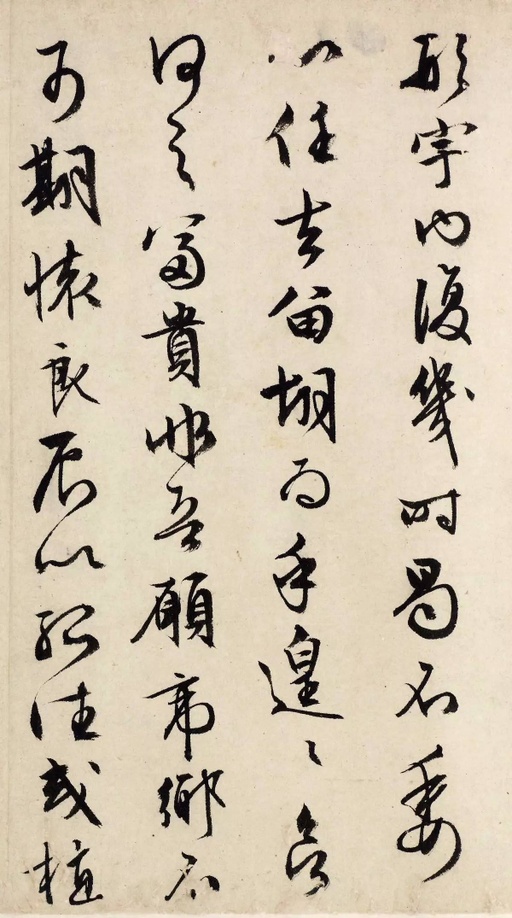 形宇内復幾時曷不委
心任去留胡為乎遑〻欲
何之富貴非吾願帝鄉不
可期懷良辰以孤往或植